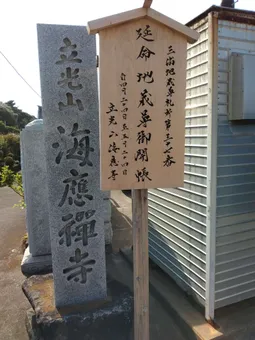 三浦地蔵尊札所第三十七番
延命地蔵尊御開帳
立光山海應寺
立光山
海應禅寺